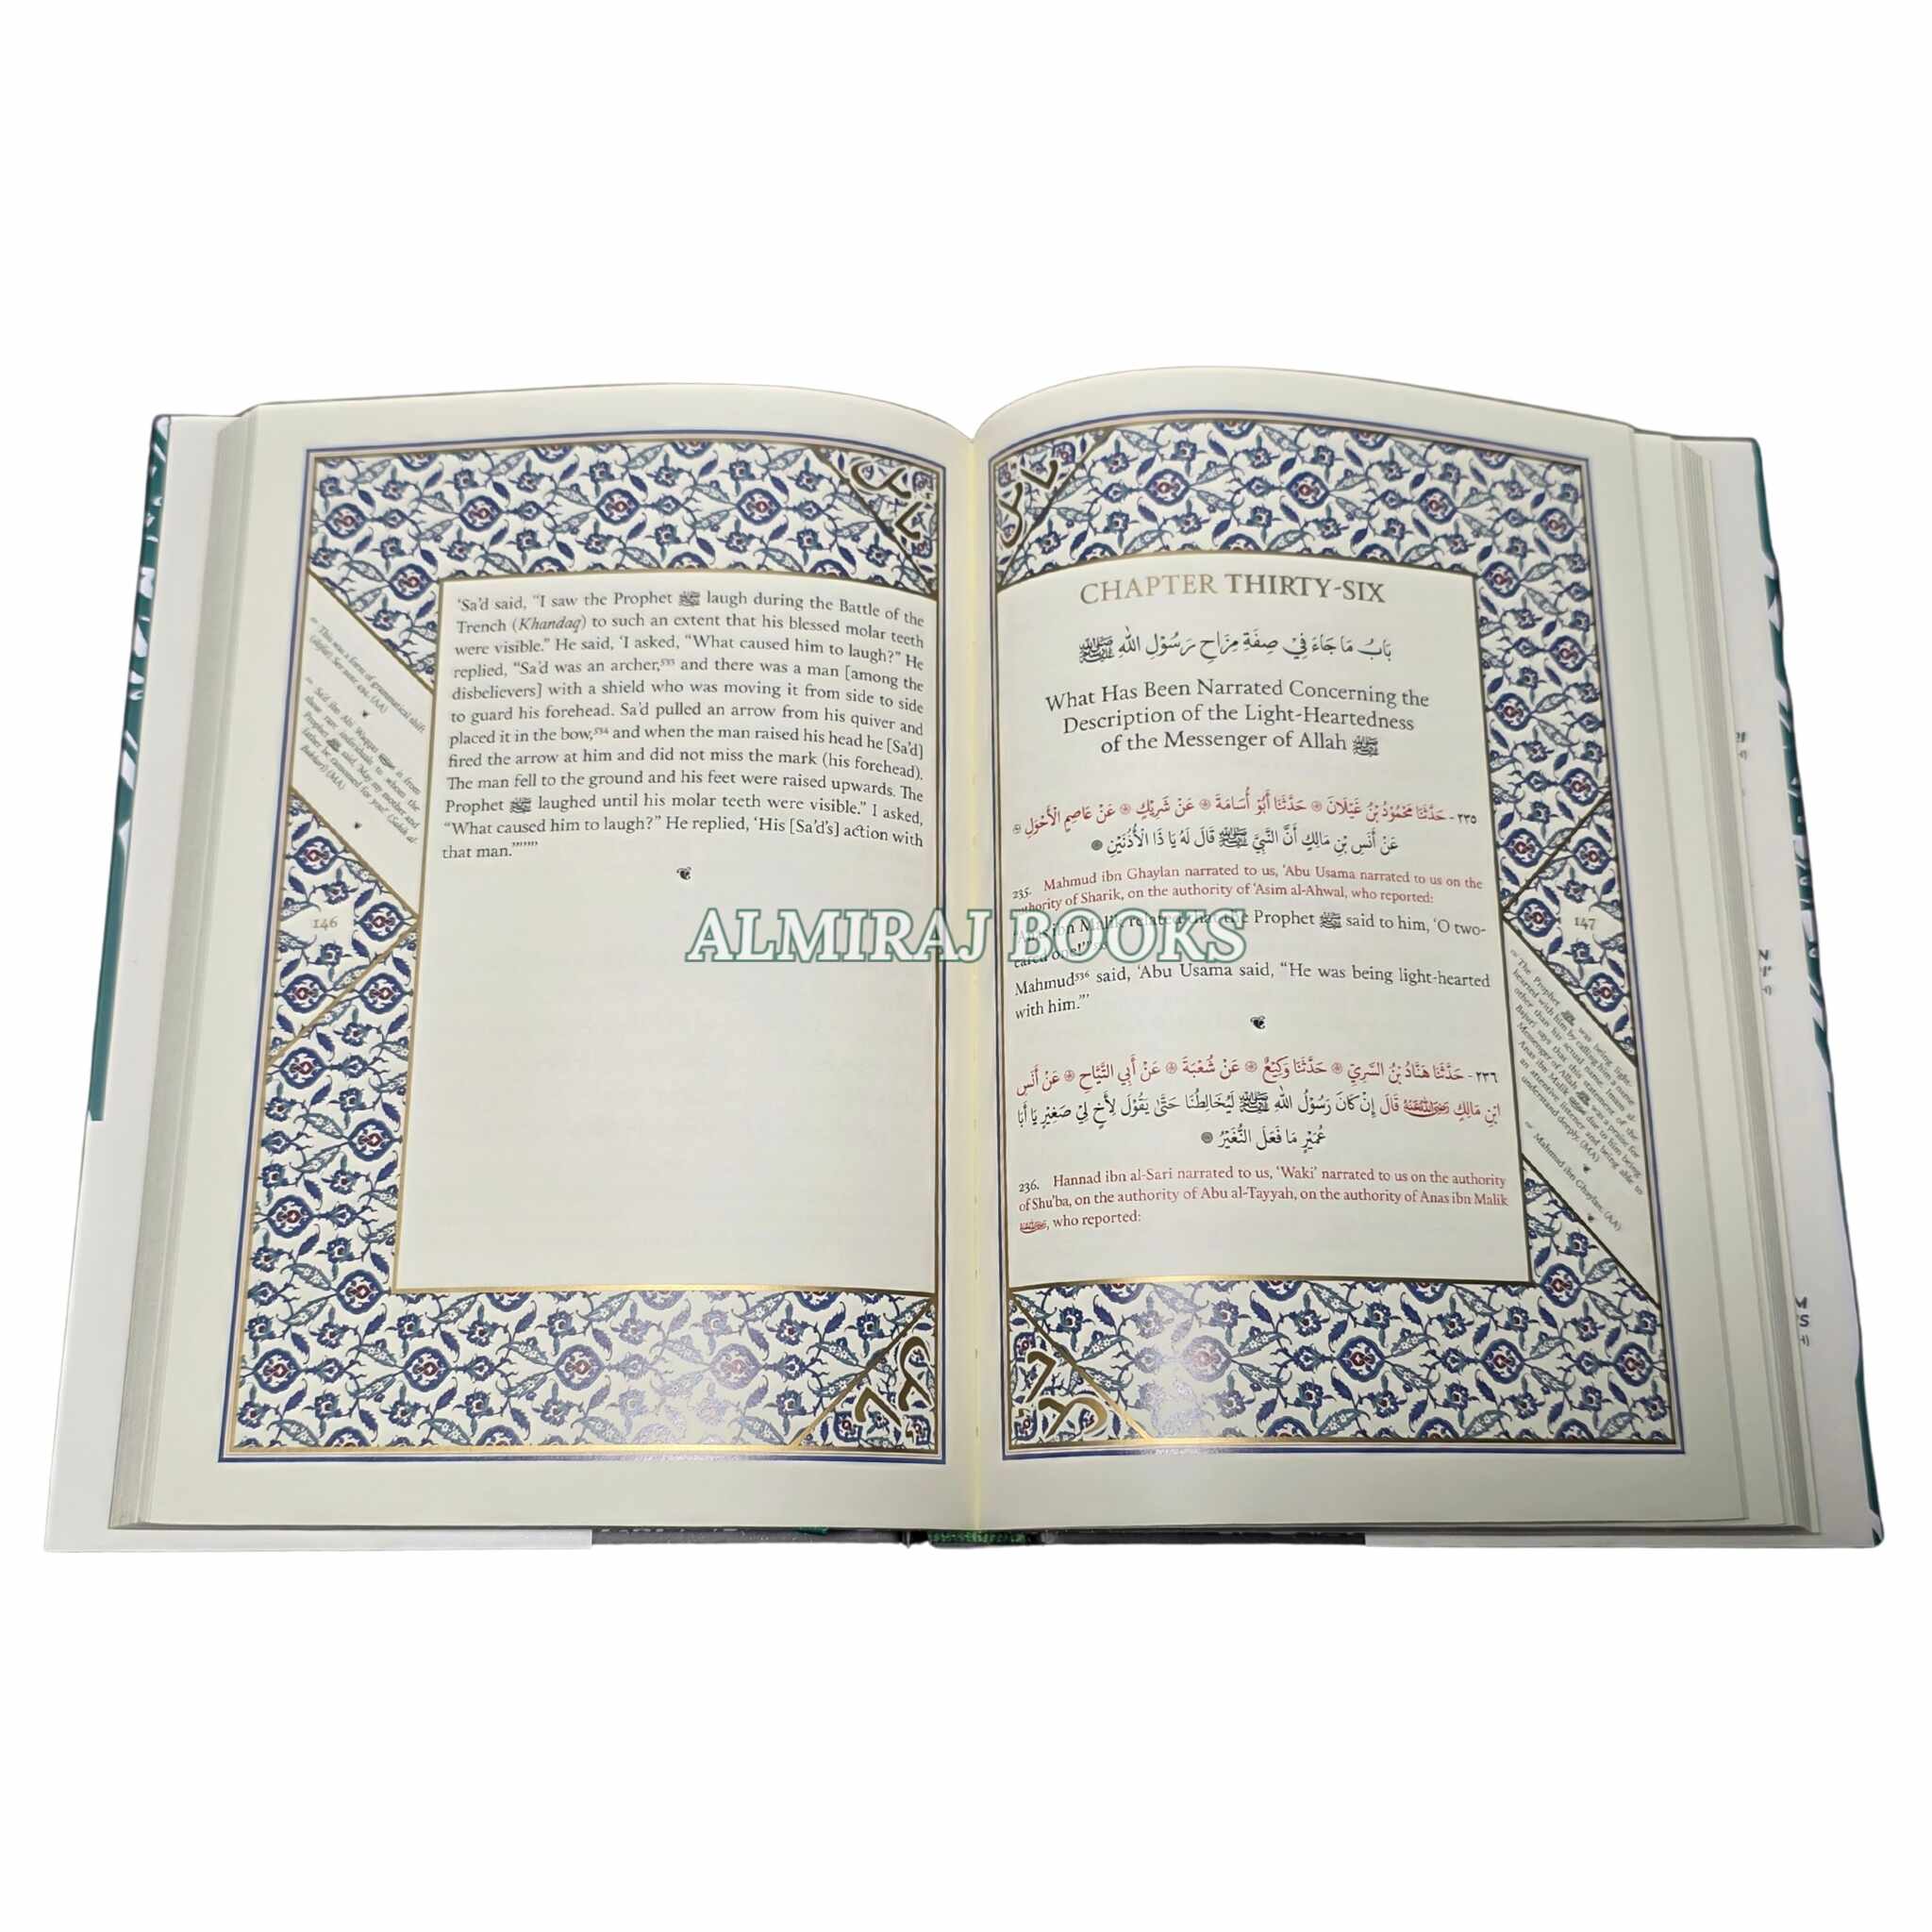 ‘Sa‘d said, “I saw the Prophet ﷺ laugh during the Battle of the
Trench (Khandaq) to such an extent that his blessed molar teeth
were visible.” He said, ‘I asked, “What caused him to laugh?” He
replied, “Sa‘d was an archer,⁵³³ and there was a man [among the
disbelievers] with a shield who was moving it from side to side
to guard his forehead. Sa‘d pulled an arrow from his quiver and
placed it in the bow,⁵³⁴ and when the man raised his head he [Sa‘d]
fired the arrow at him and did not miss the mark (his forehead).
The man fell to the ground and his feet were raised upwards. The
Prophet ﷺ laughed until his molar teeth were visible.” I asked,
“What caused him to laugh?” He replied, ‘His [Sa‘d’s] action with
that man.”’”’”
This was a form of grammatical shift
See note (AA)
Sa‘d ibn Abi Waqqas is from
those rare individuals to whom the
Prophet ﷺ said, ‘May my mother and
father be ransomed for you.’ (Sahih al-
Bukhari) (MA)
146
CHAPTER THIRTY-SIX
بَابُ مَا جَاءَ فِيْ صِفَةِ مِزَاحِ رَسُوْلِ اللهِ ﷺ
What Has Been Narrated Concerning the
Description of the Light-Heartedness
of the Messenger of Allah ﷺ
٢٣٥ - حَدَّثَنَا مَحْمُوْدُ بْنُ غَيْلَانَ ۞ حَدَّثَنَا أَبُوْ أُسَامَةَ ۞ عَنْ شَرِيْكٍ ۞ عَنْ عَاصِمٍ الْأَحْوَلِ ۞
عَنْ أَنَسِ بْنِ مَالِكٍ أَنَّ النَّبِيَّ ﷺ قَالَ لَهُ يَا ذَا الْأُذُنَيْنِ
235. Mahmud ibn Ghaylan narrated to us, ‘Abu Usama narrated to us on the
authority of Sharik, on the authority of ‘Asim al-Ahwal, who reported:
ibn Malik related that the Prophet ﷺ said to him, ‘O two-
eared one!’”
Mahmud⁵³⁶ said, ‘Abu Usama said, “He was being light-hearted
with him.”’
٢٣٦ - حَدَّثَنَا هَنَّادُ بْنُ السَّرِيِّ ۞ حَدَّثَنَا وَكِيْعٌ ۞ عَنْ شُعْبَةَ ۞ عَنْ أَبِي التَّيَّاحِ ۞ عَنْ أَنَسِ
ابْنِ مَالِكٍ رَضِيَ اللهُ عَنْهُ قَالَ إِنْ كَانَ رَسُوْلُ اللهِ ﷺ لَيُخَالِطُنَا حَتَّى يَقُوْلَ لِأَخٍ لِيْ صَغِيْرٍ يَا أَبَا
عُمَيْرٍ مَا فَعَلَ النُّغَيْرُ
236. Hannad ibn al-Sari narrated to us, ‘Waki‘ narrated to us on the authority
of Shu‘ba, on the authority of Abu al-Tayyah, on the authority of Anas ibn Malik
, who reported:
147
The Prophet ﷺ was being light-
hearted with him by calling him a name
other than his actual name. Imam al-
Bajuri says that this statement of the
Messenger of Allah ﷺ was a praise for
Anas ibn Malik due to him being
an attentive listener and being able to
understand deeply. (MA)
Mahmud ibn Ghaylan. (AA)
ALMIRAJ BOOKS